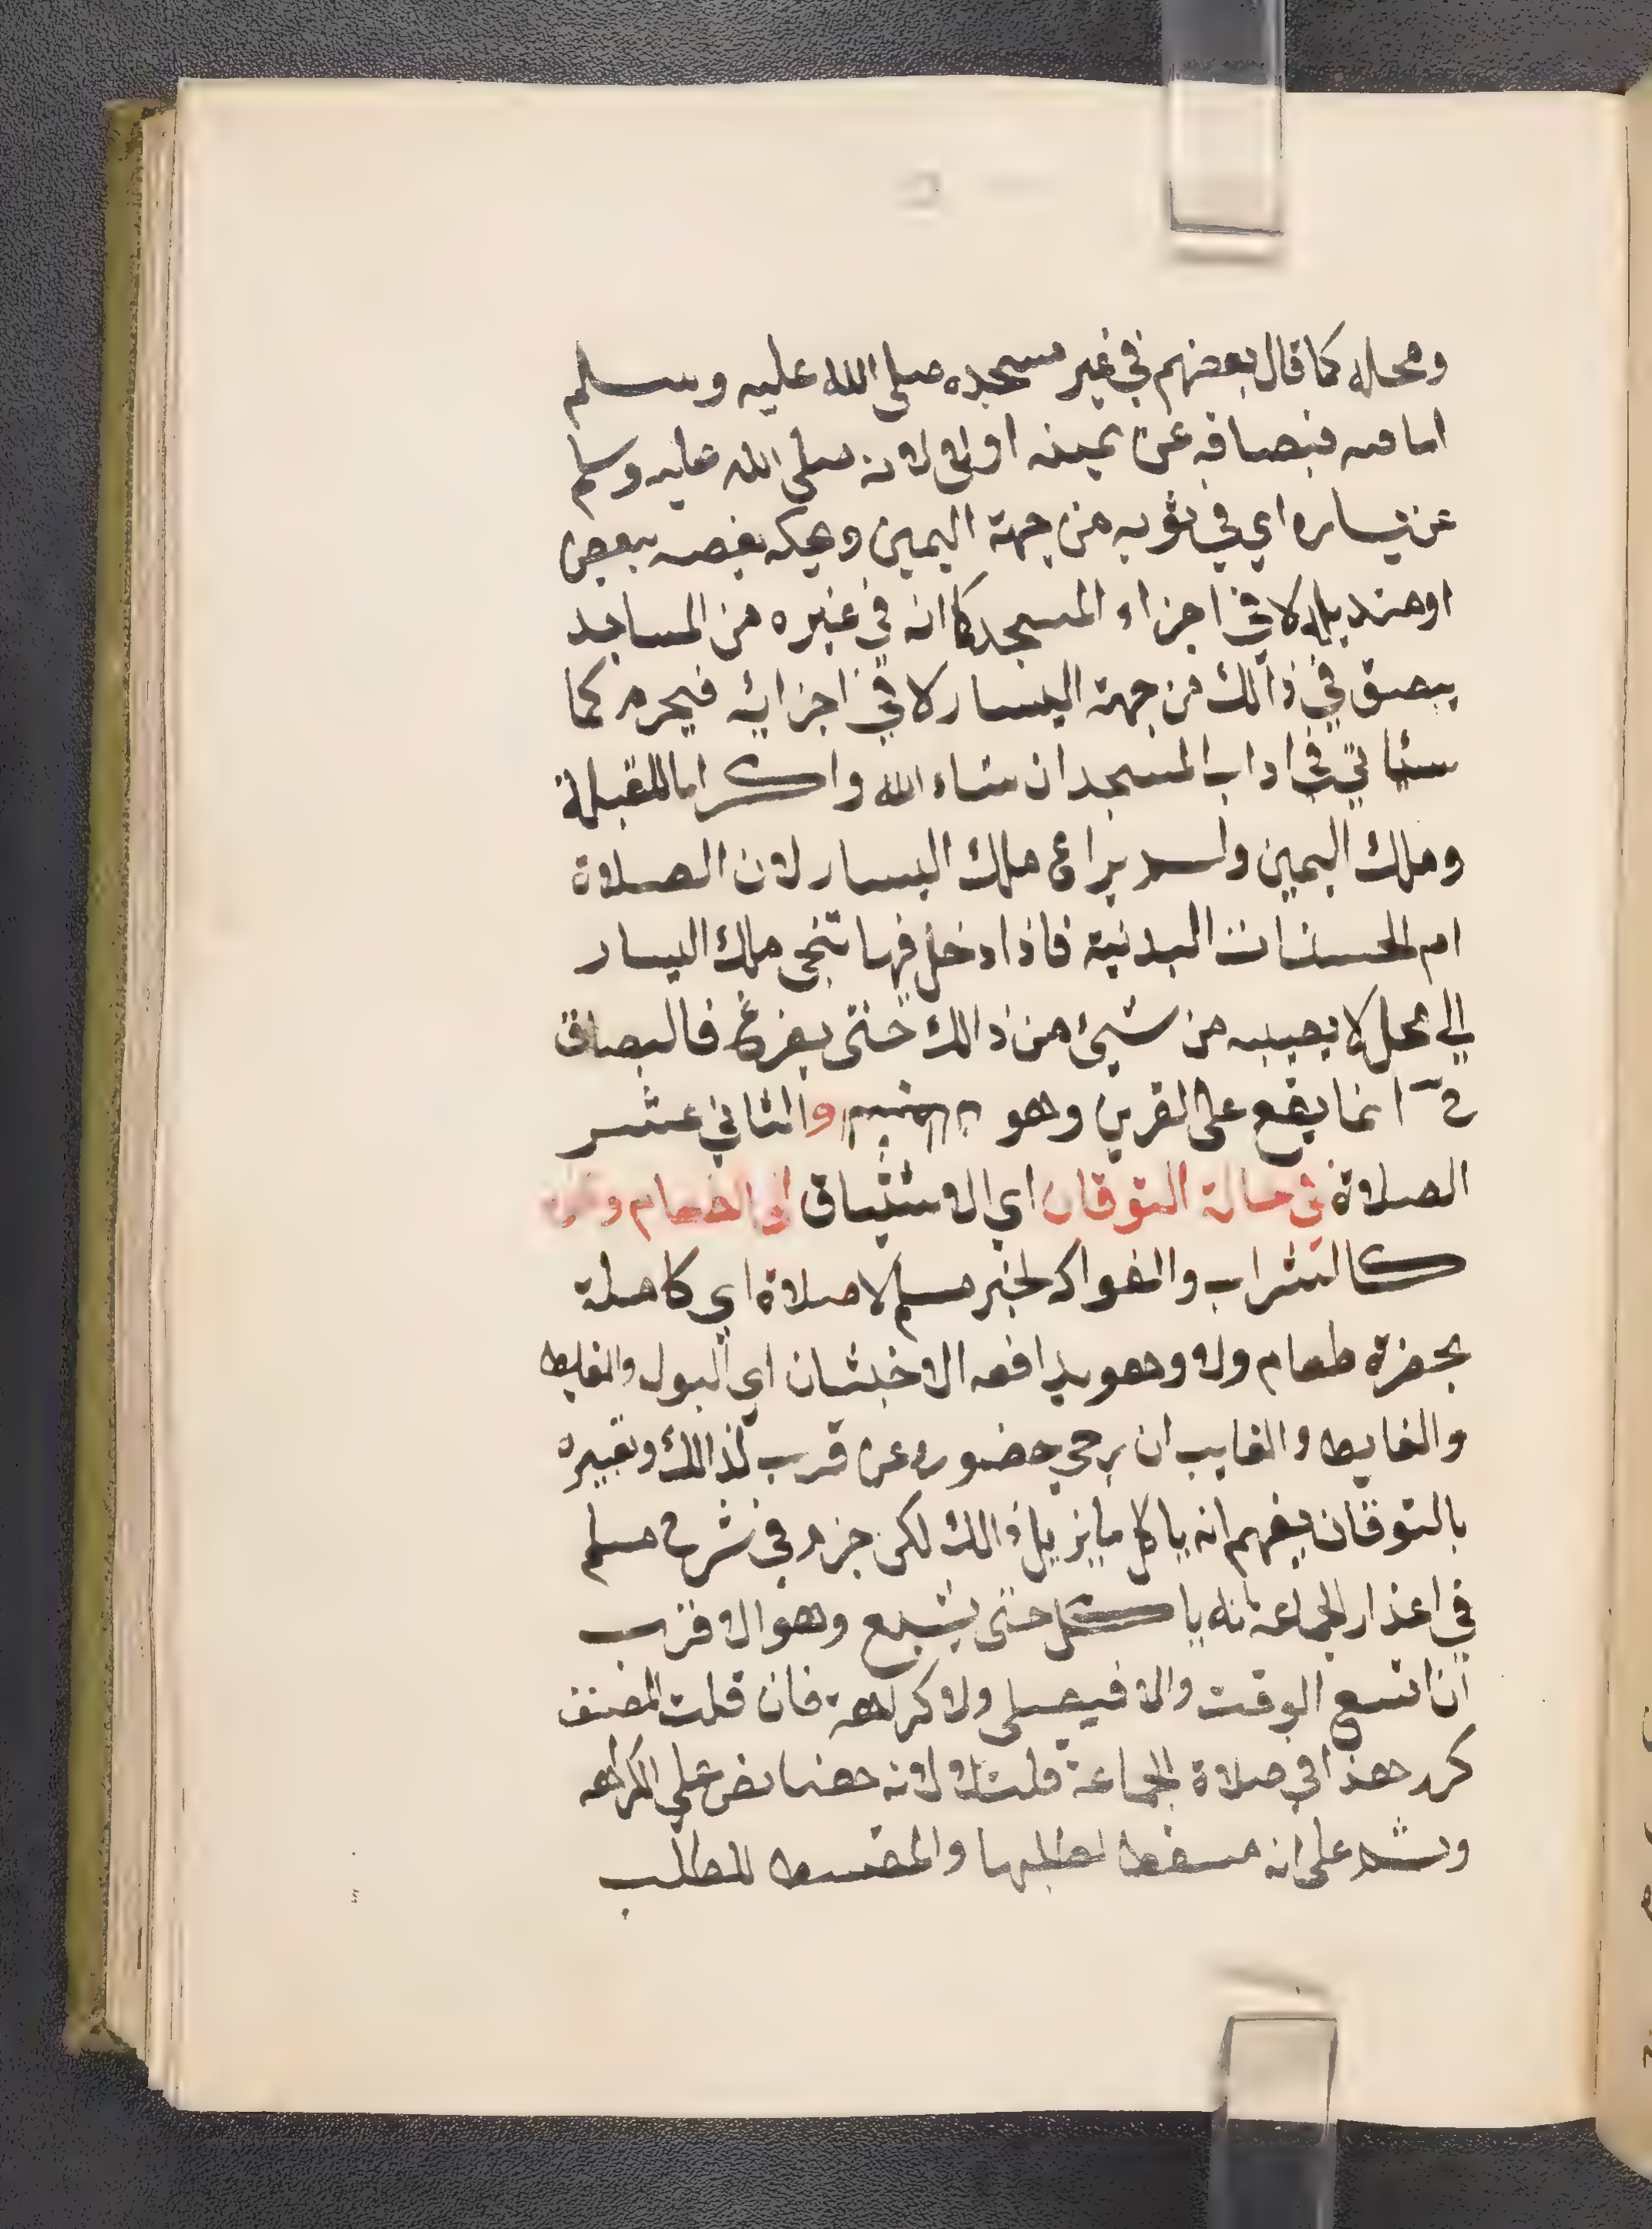 ومحله كما قال بعضهم في غير مسجده صلى الله عليه وسلم
اما فيه فبصاقه عن يمينه اولى لانه صلى الله عليه وسلم
عن يساره اي في ثوبه من جهة اليمين وحكه بعضه ببعض
او منديله لا في اجزاء المسجد كما انه في غيره من المساجد
يبصق في ذالك من جهة اليسار لا في اجزائه فيحرم كما
سياتي في اداب المسجد ان شاء الله واكراما للقبلة
وملك اليمين ولم يراع ملك اليسار لان الصلاة
ام الحسنات البدنية فاذا دخل فيها تنحى ملك اليسار
الى محل لا يصيبه من شيئ من ذالك حتى يفرغ فالبصاق
ح انما يقع على القرين وهو والثاني عشر
الصلاة في حالة التوقان اي الاشتياق الى الطعام
كالشراب والفواكه لخبر مسلم لا صلاة اي كاملة
بحضرة طعام ولا وهو يدافعه الاخبثان اي البول والغايط
والغايط والغايب ان يرجى حضوره عن قرب لذالك وتعبيره
بالتوقان يفهم انه ياكل ما يزيل ذالك لكن جزم في شرح مسلم
في اعذار الجماعة بانه ياكل حتى يشبع وهو الاقرب
ان اتسع الوقت والا فيصلى ولا كراهة فان قلت المصنف
كرر هذا في صلاة الجماعة قلت لا لانه هنا نص على الكراهه
وثم على انه مسقط لطلبها والمقسط للطلب